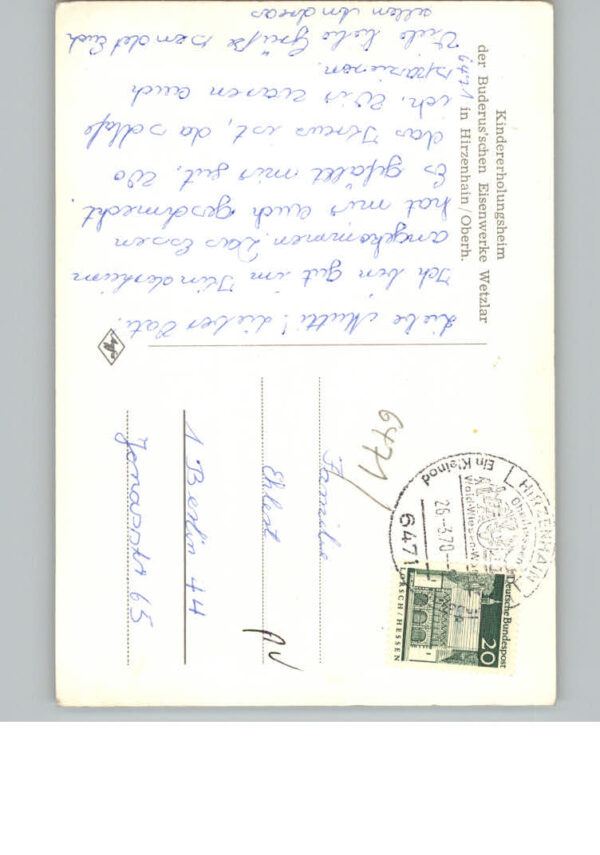 Kindererholungsheim
der Buderus'schen Eisenwerke Wetzlar
in Hirzenhain/Oberh.
6471
Liebe Mutti! Lieber Vati!
Ich bin gut im Kinderheim
angekommen. Das Essen
hat mir auch geschmeckt
Es gefällt mir gut. Wo
das Kreuz ist, da schlafe
ich. Wir waren auch
spazieren.
Viele liebe Grüße sendet Euch
Andreas
Agfa
6471/
HIRZENHAIN
Oberhessen
Ein Kleinod
Wald-Wiesen-
26.-3.70
6471
Deutsche Bundespost
20
LORSCH/HESSEN
Familie
Ehlert
1 Berlin 44
Jonasstr 65